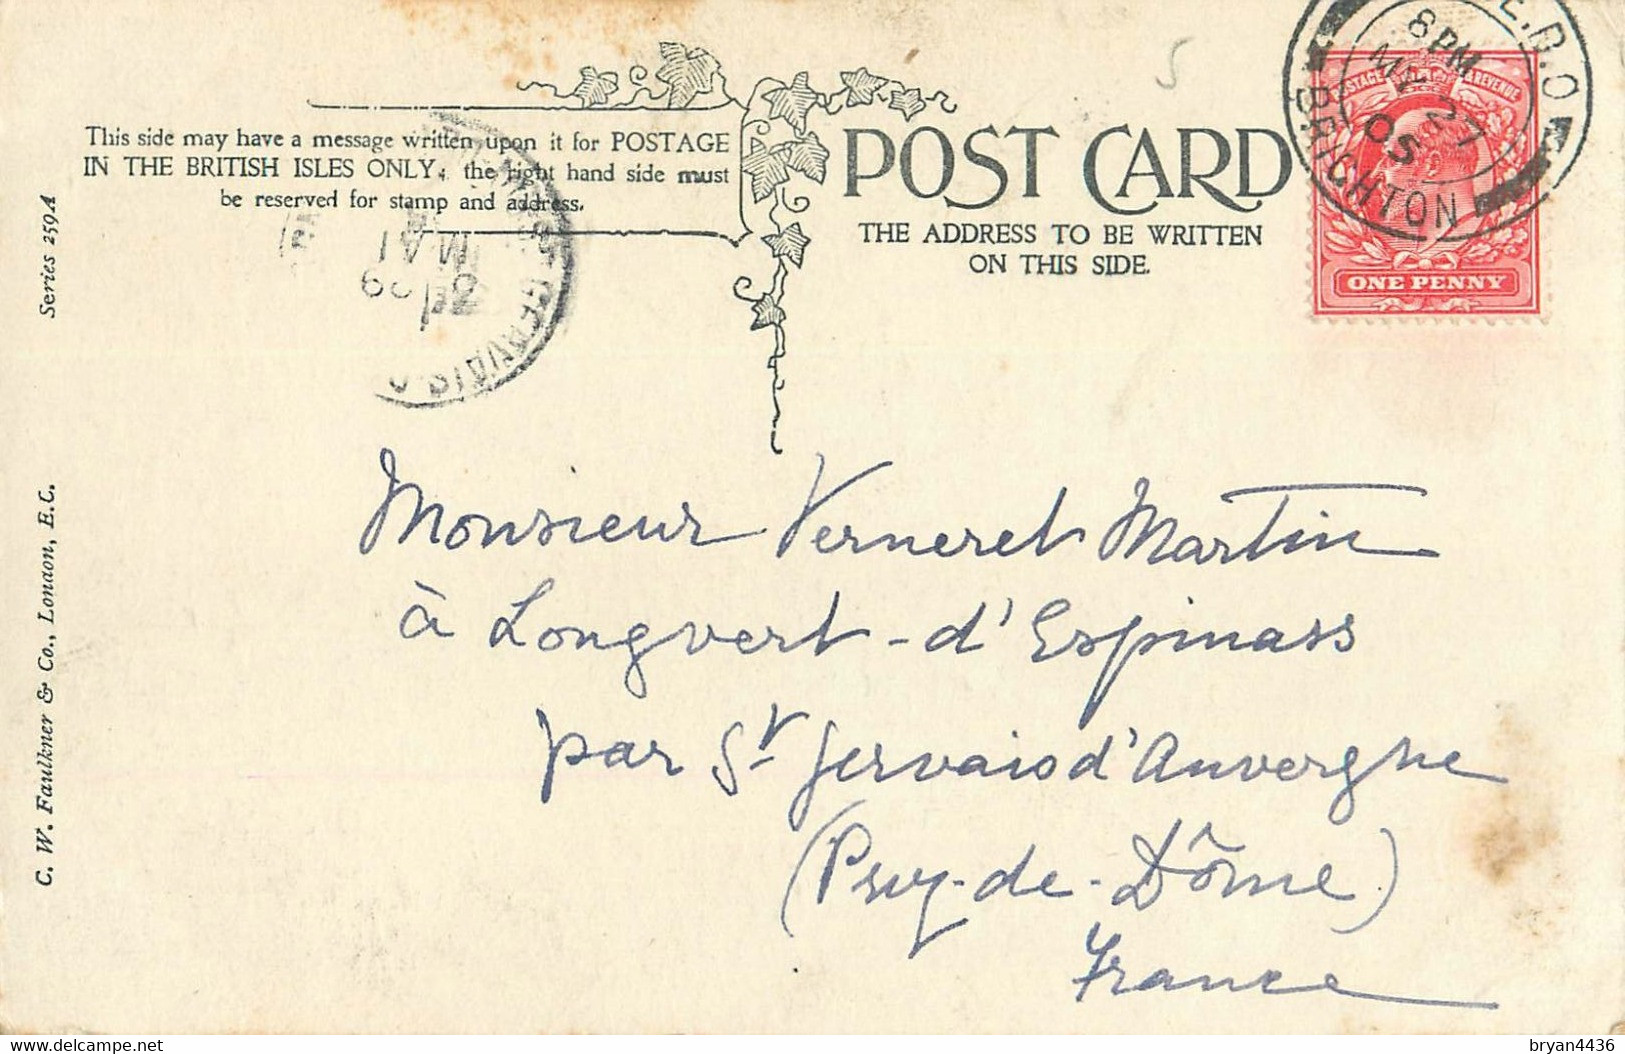 This side may have a message written upon it for POSTAGE
IN THE BRITISH ISLES ONLY; the right hand side must
be reserved for stamp and address.
POST CARD
THE ADDRESS TO BE WRITTEN
ON THIS SIDE.
5
8 PM
MY 27
05
BRIGHTON
POSTAGE & REVENUE
ONE PENNY
MAI
Series 259A
C. W. Faulkner & Co., London, E.C.
Monsieur Verneret Martin
à Longvert-d'Espinass
par St Gervais d'Auvergne
(Puy-de-Dôme)
France
bryan4436
delcampe.net